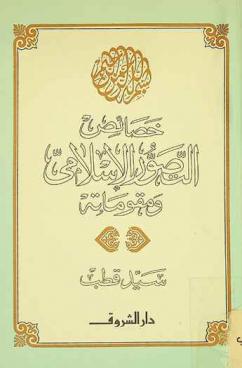 بسم الله الرحمن الرحيم
خصائص
التصور الإسلامي
ومقوماته
سيد قطب
دار الشروق